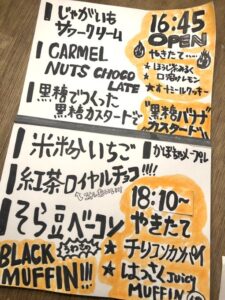 じゃがいも
サワークリーム
CARMEL
NUTS CHOCO
LATE
黒糖でつくった
黒糖カスタード
16:45
OPEN
やきたて
ほうじ茶みるく
レモン
オートミールクッキー
"黒糖バナナ
カスタード"
米粉いちご
かぼちゃメープル
紅茶ロイヤルチョコ!!!
そら豆ベーコン
BLACK
MUFFIN!!!
18:10~
やきたて
★
★はっさくJUICY
MUFFIN